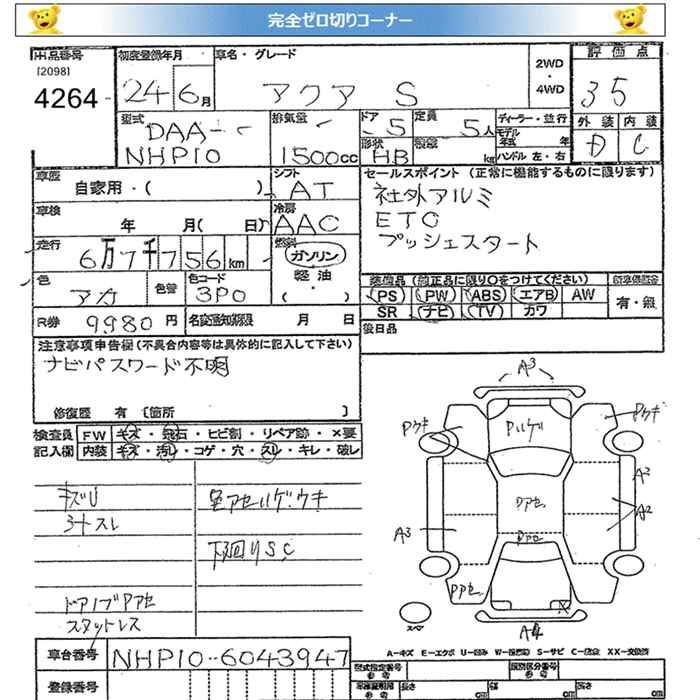 完全ゼロ切りコーナー
出品番号
[2098]
4264
初度登録年月
24 6月
車名・グレード
アクア S
2WD
・
4WD
評価点
35
外装 内装
D C
型式
DAA-
NHP10
排気量
1500cc
ドア
5
形状
HB
定員
5人
積載
kg
ディーラー・並行
モデル
年式 年
ハンドル 左・右
車歴
自家用・( )
シフト
AT
車検
年 月( 日)
冷房
AAC
走行
6万7千756km
燃料
ガソリン
軽油
( ・ )
色
アカ
色替
色コード
3P0
R券
9980円
名変通知期限
月 日
セールスポイント (正常に機能するものに限ります)
社外アルミ
ETC
プッシュスタート
装備品 (純正品に限り○をつけてください)
PS PW ABS エアB AW
SR ナビ TV カワ
新車保証書
有・無
後日品
注意事項申告欄 (不具合内容等は具体的に記入して下さい)
ナビパスワード不明
修復歴 有 [箇所 ]
検査員
記入欄
FW キズ・飛石・ヒビ割・リペア跡・×要
内装 キズ・汚レ・コゲ・穴・スレ・キレ・破レ
キズU
シートスレ
ドアノブPアセ
スタットレス
色アセハゲ.ウキ
下廻りS,C
A3
Pウキ
Pウキ
Pハゲ
A2
A2
A3
Pアセ
Pアセ
Pアセ
X
スペア
A4
A=キズ E=エクボ U=凹み W=修理跡 S=サビ C=腐食 XX=交換済
車台番号
NHP10-6043947
登録番号
型式指定番号
類別区分番号
長さ cm
幅 cm
高さ cm